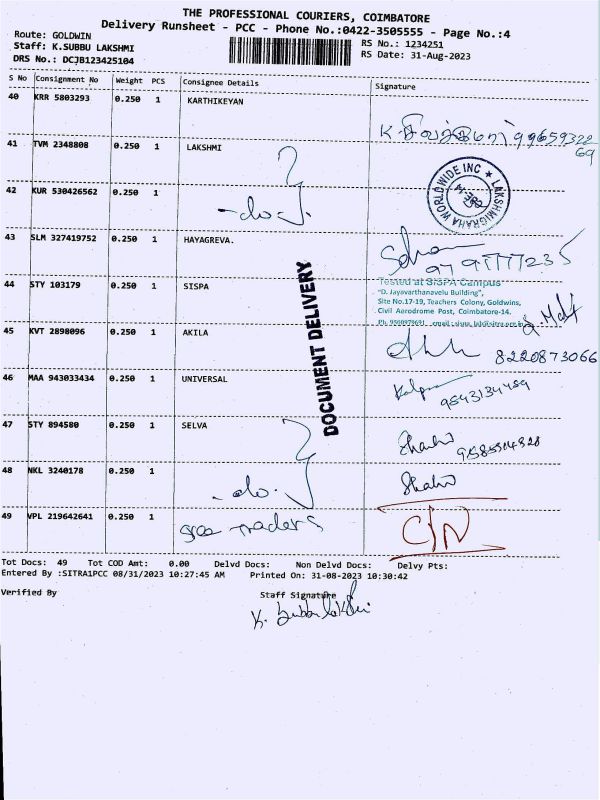 THE PROFESSIONAL COURIERS, COIMBATORE
Delivery Runsheet - PCC - Phone No.:0422-3505555 - Page No.:4
Route: GOLDWIN
Staff: K.SUBBU LAKSHMI
DRS No.: DCJB123425104
RS No.: 1234251
RS Date: 31-Aug-2023
S No Consignment No Weight PCS Consignee Details Signature
40 KRR 5803293 0.250 1 KARTHIKEYAN
9965932269
41 TVM 2348808 0.250 1 LAKSHMI
LAKSHMIGRAHA WORLDWIDE INC
42 KUR 530426562 0.250 1
-do-
43 SLM 327419752 0.250 1 HAYAGREVA.
44 STY 103179 0.250 1 SISPA
Tested at SISPA Campus
"D. Jayavarthanavelu Building",
Site No.17-19, Teachers Colony, Goldwins,
Civil Aerodrome Post, Coimbatore-14.
DOCUMENT DELIVERY
45 KVT 2898096 0.250 1 AKILA
8220873066
46 MAA 943033434 0.250 1 UNIVERSAL
Kalpa
9543134459
47 STY 894580 0.250 1 SELVA
48 NKL 3240178 0.250 1
-do-
49 VPL 219642641 0.250 1
sree traders
Tot Docs: 49 Tot COD Amt: 0.00 Delvd Docs: Non Delvd Docs: Delvy Pts:
Entered By :SITRA1PCC 08/31/2023 10:27:45 AM Printed On: 31-08-2023 10:30:42
Verified By Staff Signature
K. Subbu lakshmi